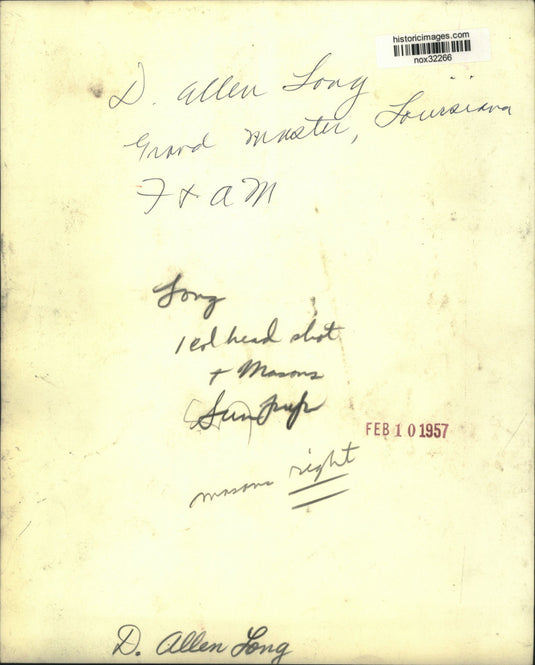 historicimages.com
nox32266
D. Allen Long
Grand Master, Louisiana
F & A M
Long
1 col head shot
+ Masons
Sun
FEB 10 1957
masons right
D. Allen Long